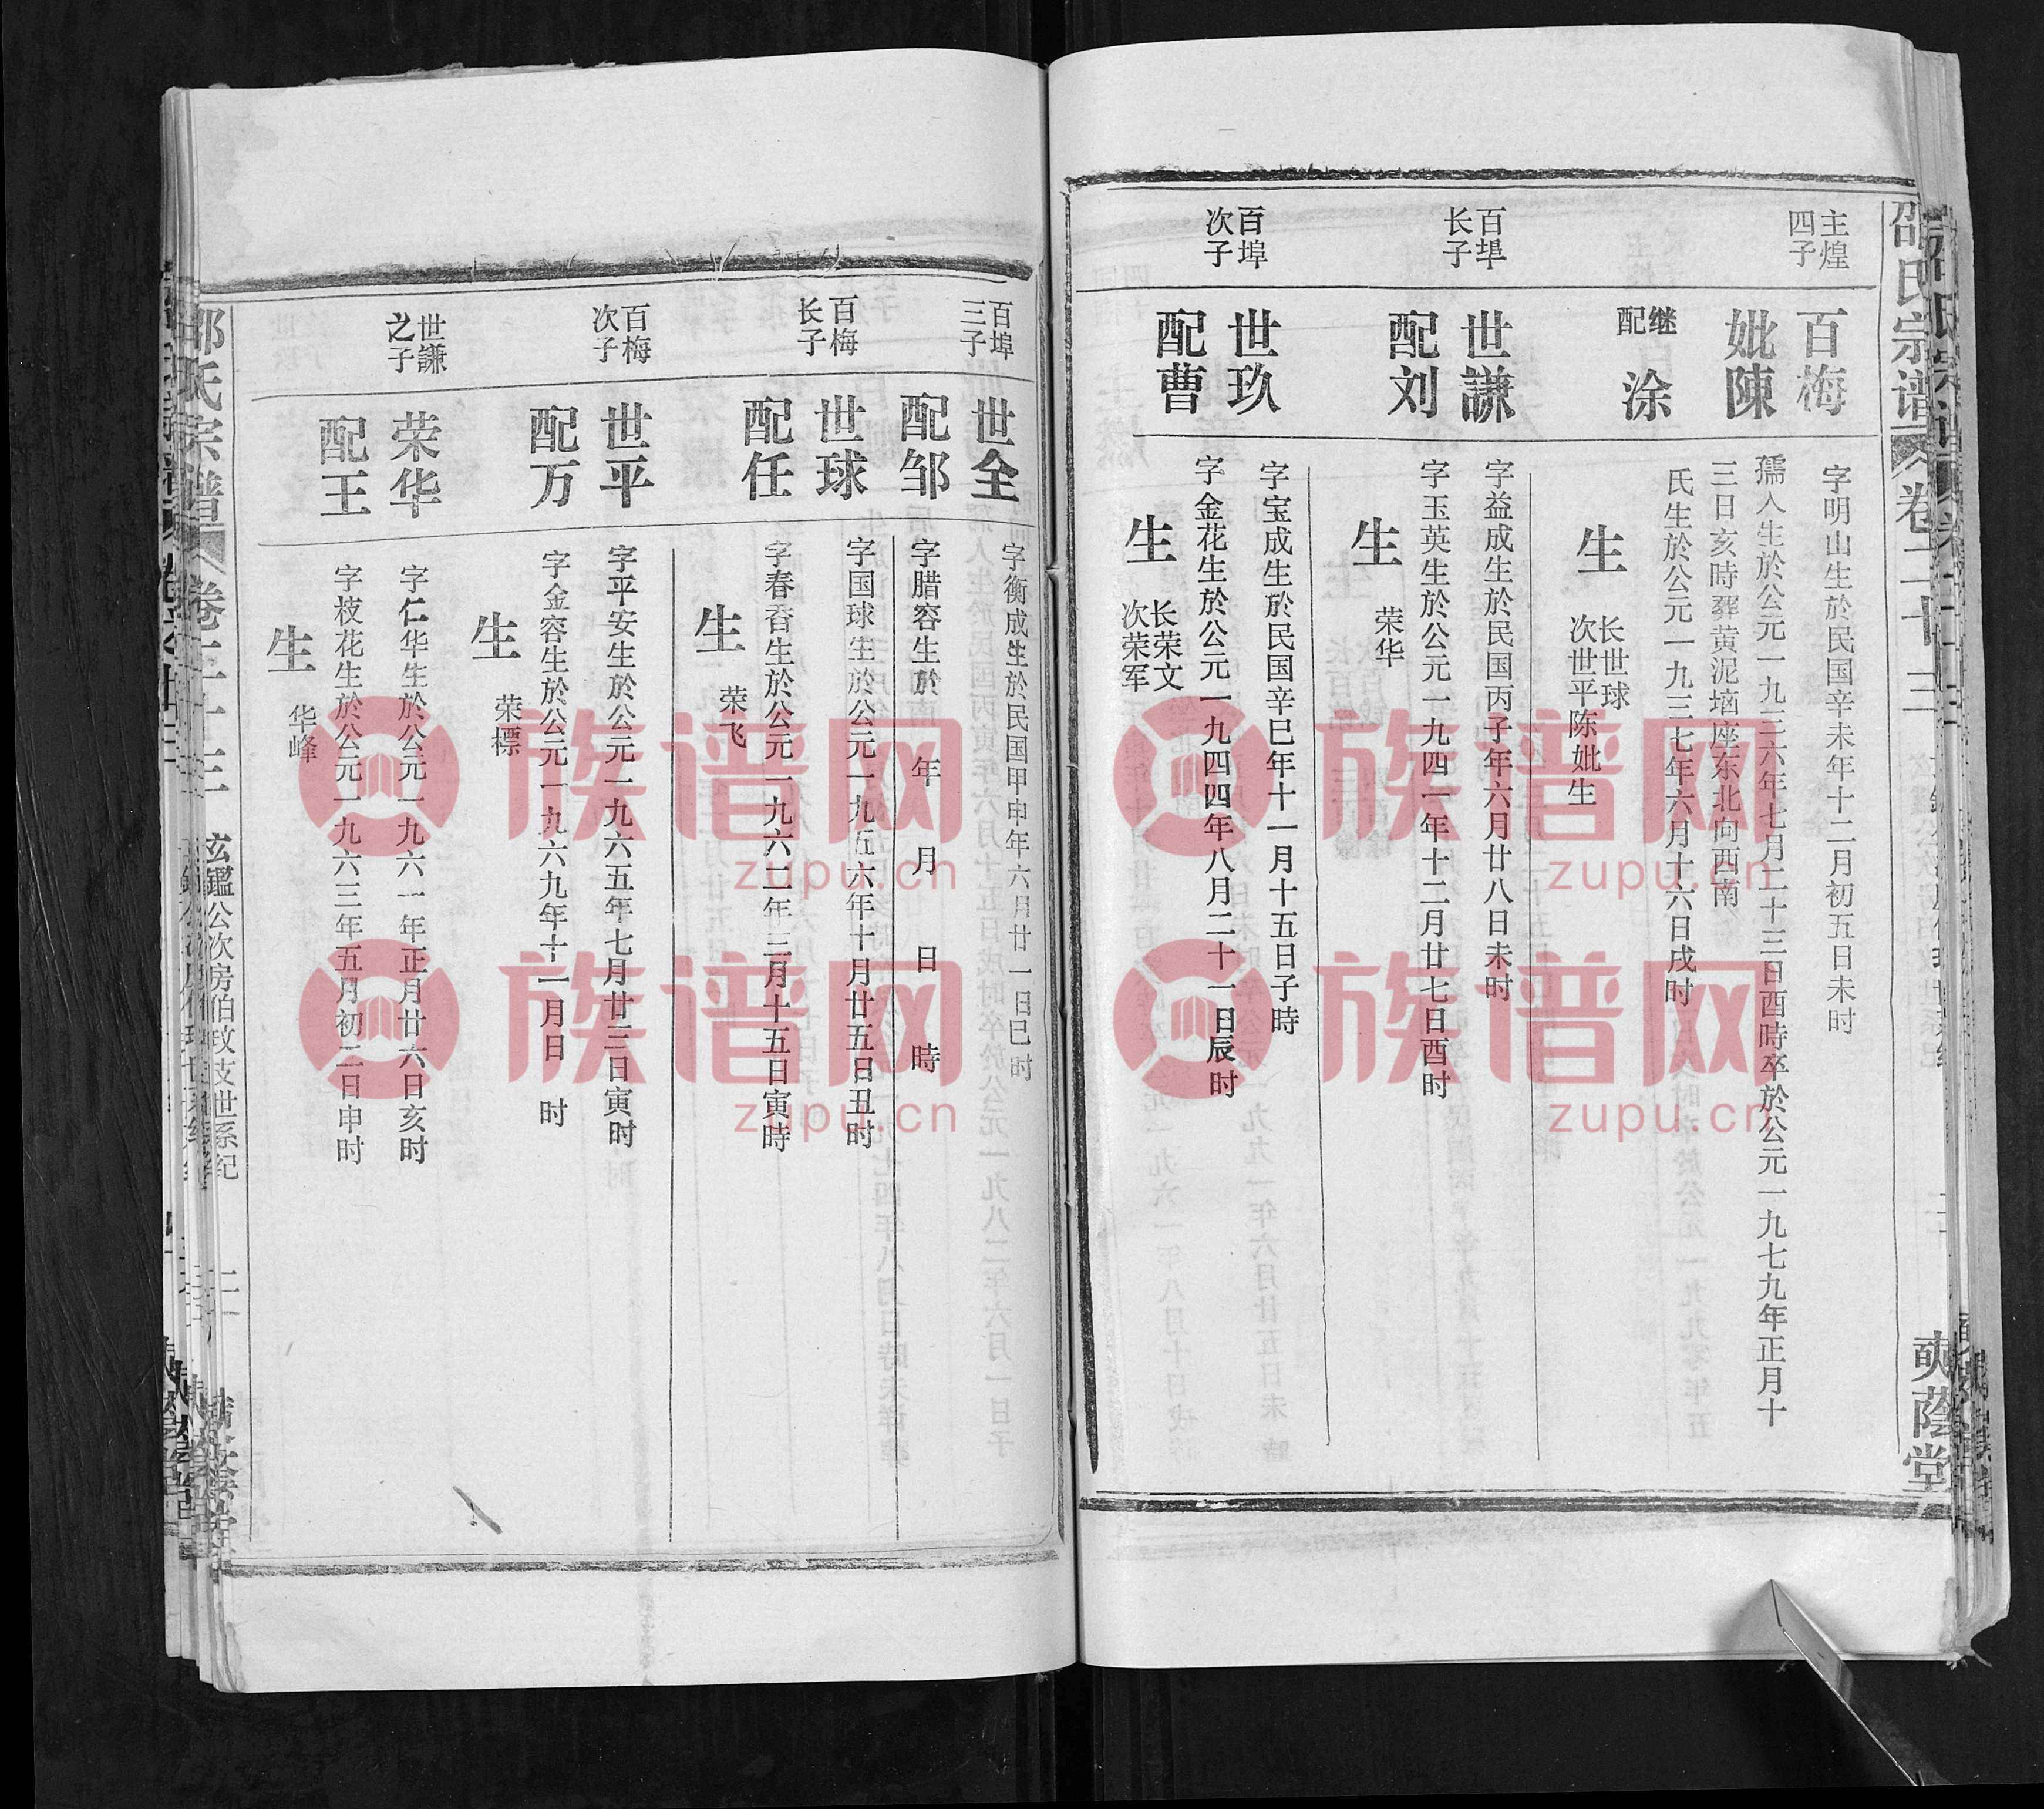 邵氏宗谱
卷二十三
奭蔭堂
主煌
四子
百梅
字明山生於民国辛未年十二月初五日未时
妣陳
孺人生於公元一九三六年七月二十三日酉時卒於公元一九七九年正月十
三日亥時葬黄泥垴座东北向西南
继
配
涂
氏生於公元一九三七年六月十六日戌时
生
长世球
次世平陈妣生
百埠
长子
世謙
字益成生於民国丙子年六月廿八日未时
配刘
字玉英生於公元一九四一年十二月廿七日酉时
生
荣华
百埠
次子
世玖
字宝成生於民国辛巳年十一月十五日子時
配曹
字金花生於公元一九四四年八月二十一日辰时
生
长荣文
次荣军
百埠
三子
世全
字衡成生於民国甲申年六月廿一日巳时
配邹
字腊容生於 年 月 日 時
百梅
长子
世球
字国球生於公元一九五六年十月廿五日丑时
配任
字春香生於公元一九六二年二月十五日寅時
生
荣飞
百梅
次子
世平
字平安生於公元一九六五年七月廿三日寅时
配万
字金容生於公元一九六九年十一月日 时
生
荣標
世謙
之子
荣华
字仁华生於公元一九六一年正月廿六日亥时
配王
字枝花生於公元一九六三年五月初二日申时
生
华峰
邵氏宗譜
卷二十三
玄鑑公次房伯玫支世系纪
族谱网
zupu.cn
族谱网
zupu.cn
族谱网
zupu.cn
族谱网
zupu.cn